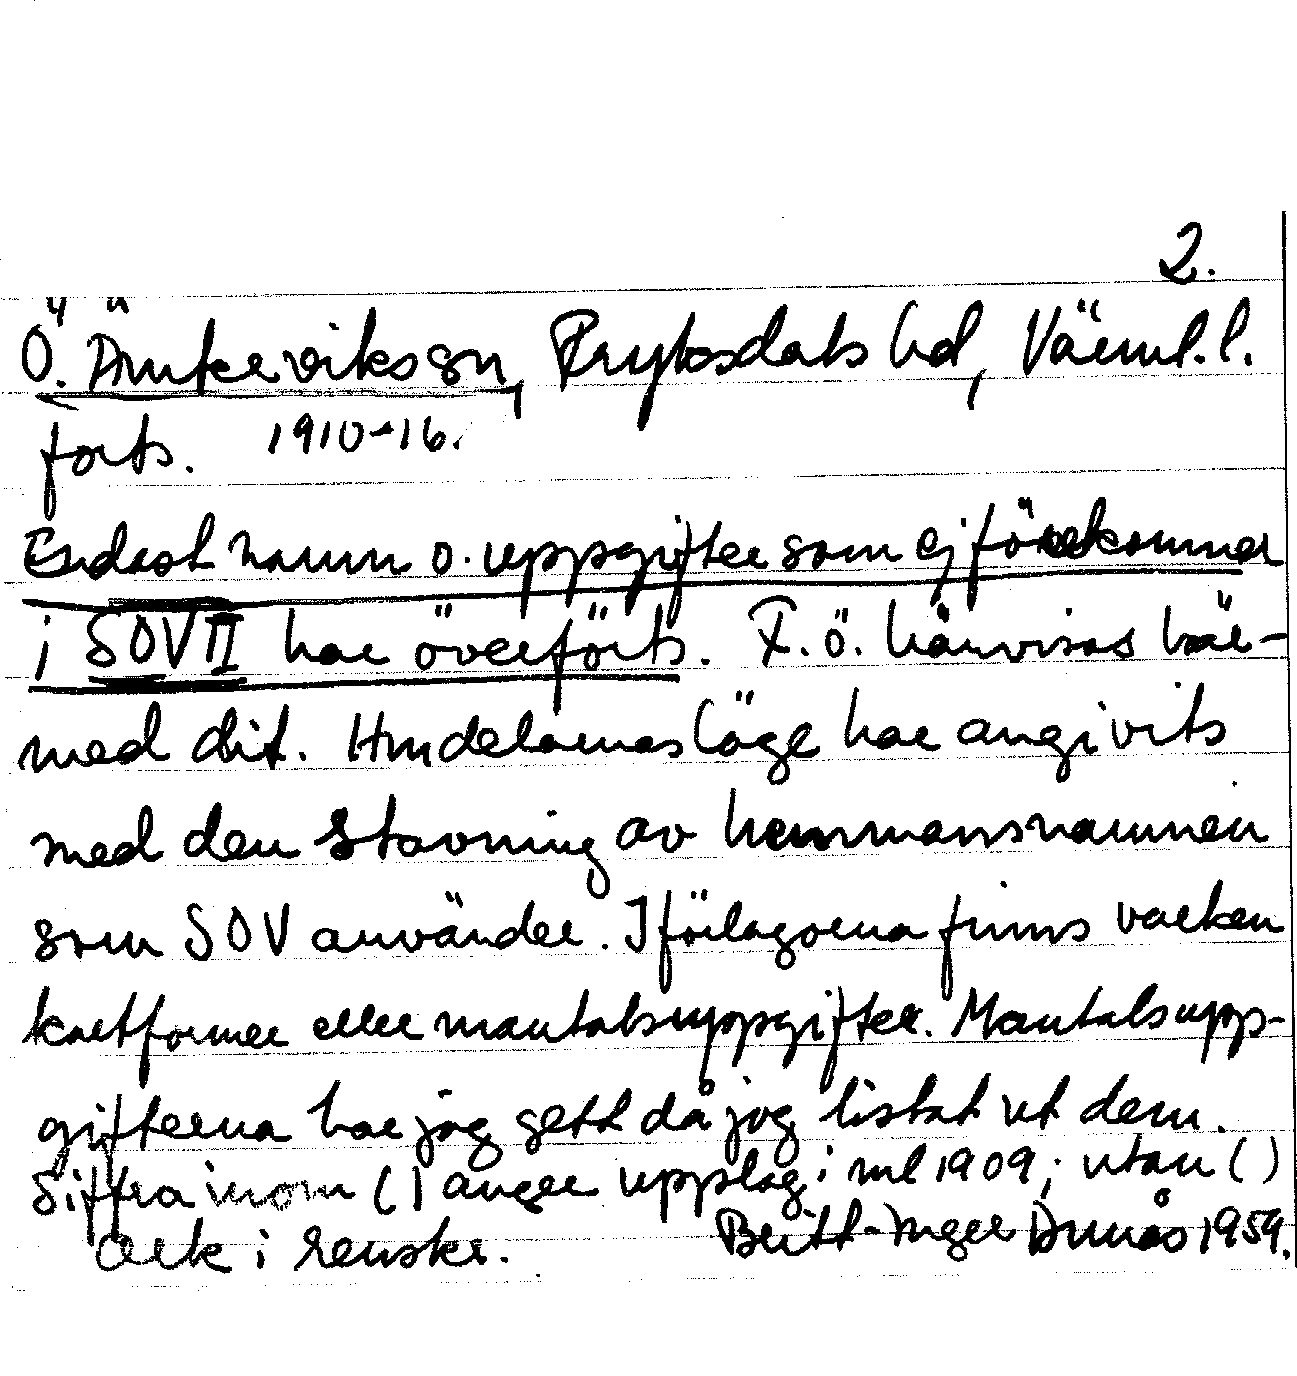 2.
Ö. Ämterviks sn, Fryksdals hd, Värml. l.
forts. 1910-16.
Endast namn o. uppgifter som ej förekommer
i SOV II har överförts. F. ö. hänvisas här-
med dit. Hmdelarnas läge har angivits
med den stavning av hemmansnamnen
som SOV använder. I förlagorna finns varken
kartformer eller mantalsuppgifter. Mantalsupp-
gifterna har jag gett då jag listat ut dem.
Siffra inom ( ) anger upplag i ml 1909; utan ( )
ark i renskr. Britt-Inger Dunås 1959.